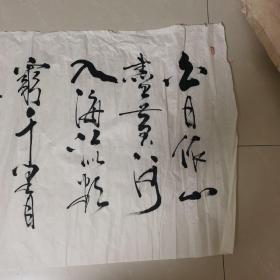 白日依山
盡黄河
入海流欲
窮千里目